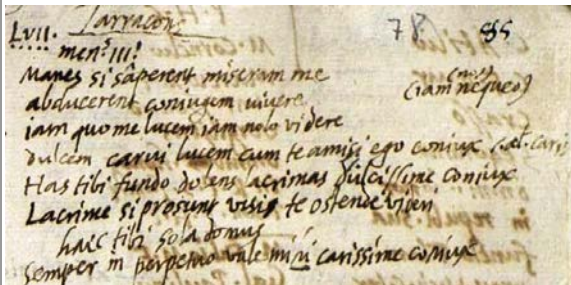 LVII. Tarracon; 78 885
men.s III!
Manes si sāperent miseram me
abducerent coniugem vivere (iam (nos) nequeo)
iam quo me lucem iam nolo videre
dulcem carui lucem cum te amisi ego coniux
Has tibi fundo dolens lacrimas dulcissime coniux
Lacrime si prosunt visis te ostende videri
haec tibi sola domus
semper in perpetuo vale mihi carissime coniux